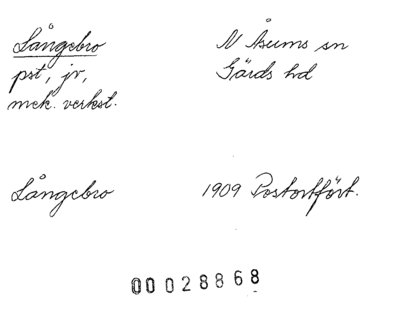 Långebro N Åsums sn
pst, jv, Gärds hd
mek. verkst.
Långebro 1909 Postortfört.
00028868